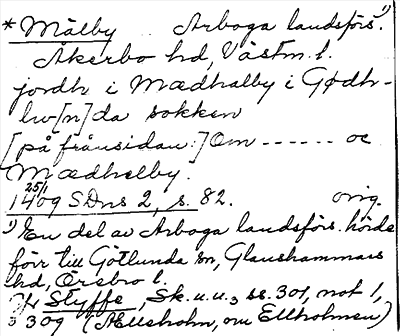 * Mälby Arboga landsförs. 1)
Åkerbo hd, Västm. l.
jordh i Mædhalby i Gødh-
lw[n]da sokken
[på frånsidan:] Om ------ oc
Mædhelby.
25/1
1409 SDns 2, s. 82. orig.
1) En del av Arboga landsförs. hörde
förr till Götlunda sn, Glanshammars
hd, Örebro l.
Jfr Styffe, Sk. u. u. 3 ss. 301, not 1,
309 (Ællsholm, om Ellholmen)